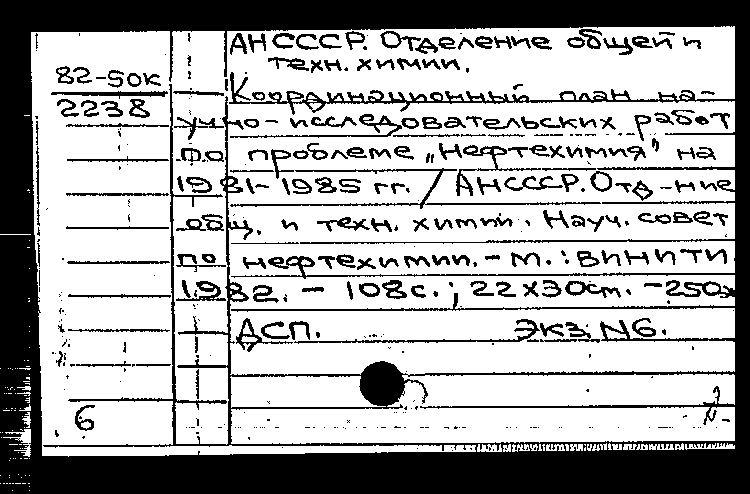 АН СССР. Отделение общей и
техн. химии.
82-50к
2238
Координационный план на-
учно-исследовательских работ
по проблеме „Нефтехимия" на
1981-1985 гг. / АН СССР. Отд-ние
общ. и техн. химии. Науч. совет
по нефтехимии. - М.: ВИНИТИ
1982. - 108с.; 22х30см. - 250э
ДСП. Экз. N6.
6